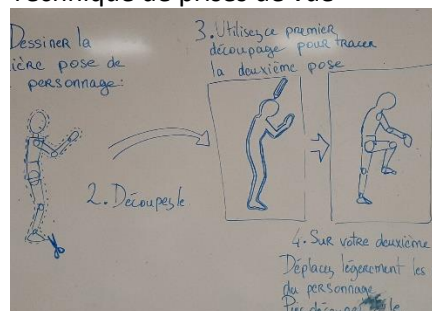 Technique de prises de vue
Dessiner la
ière pose de
personnage:
2. Découpez le
3. Utilisez ce premier
découpage pour tracer
la deuxième pose
4. Sur votre deuxième
Déplacez légèrement les
du personnage
Puis découpez le